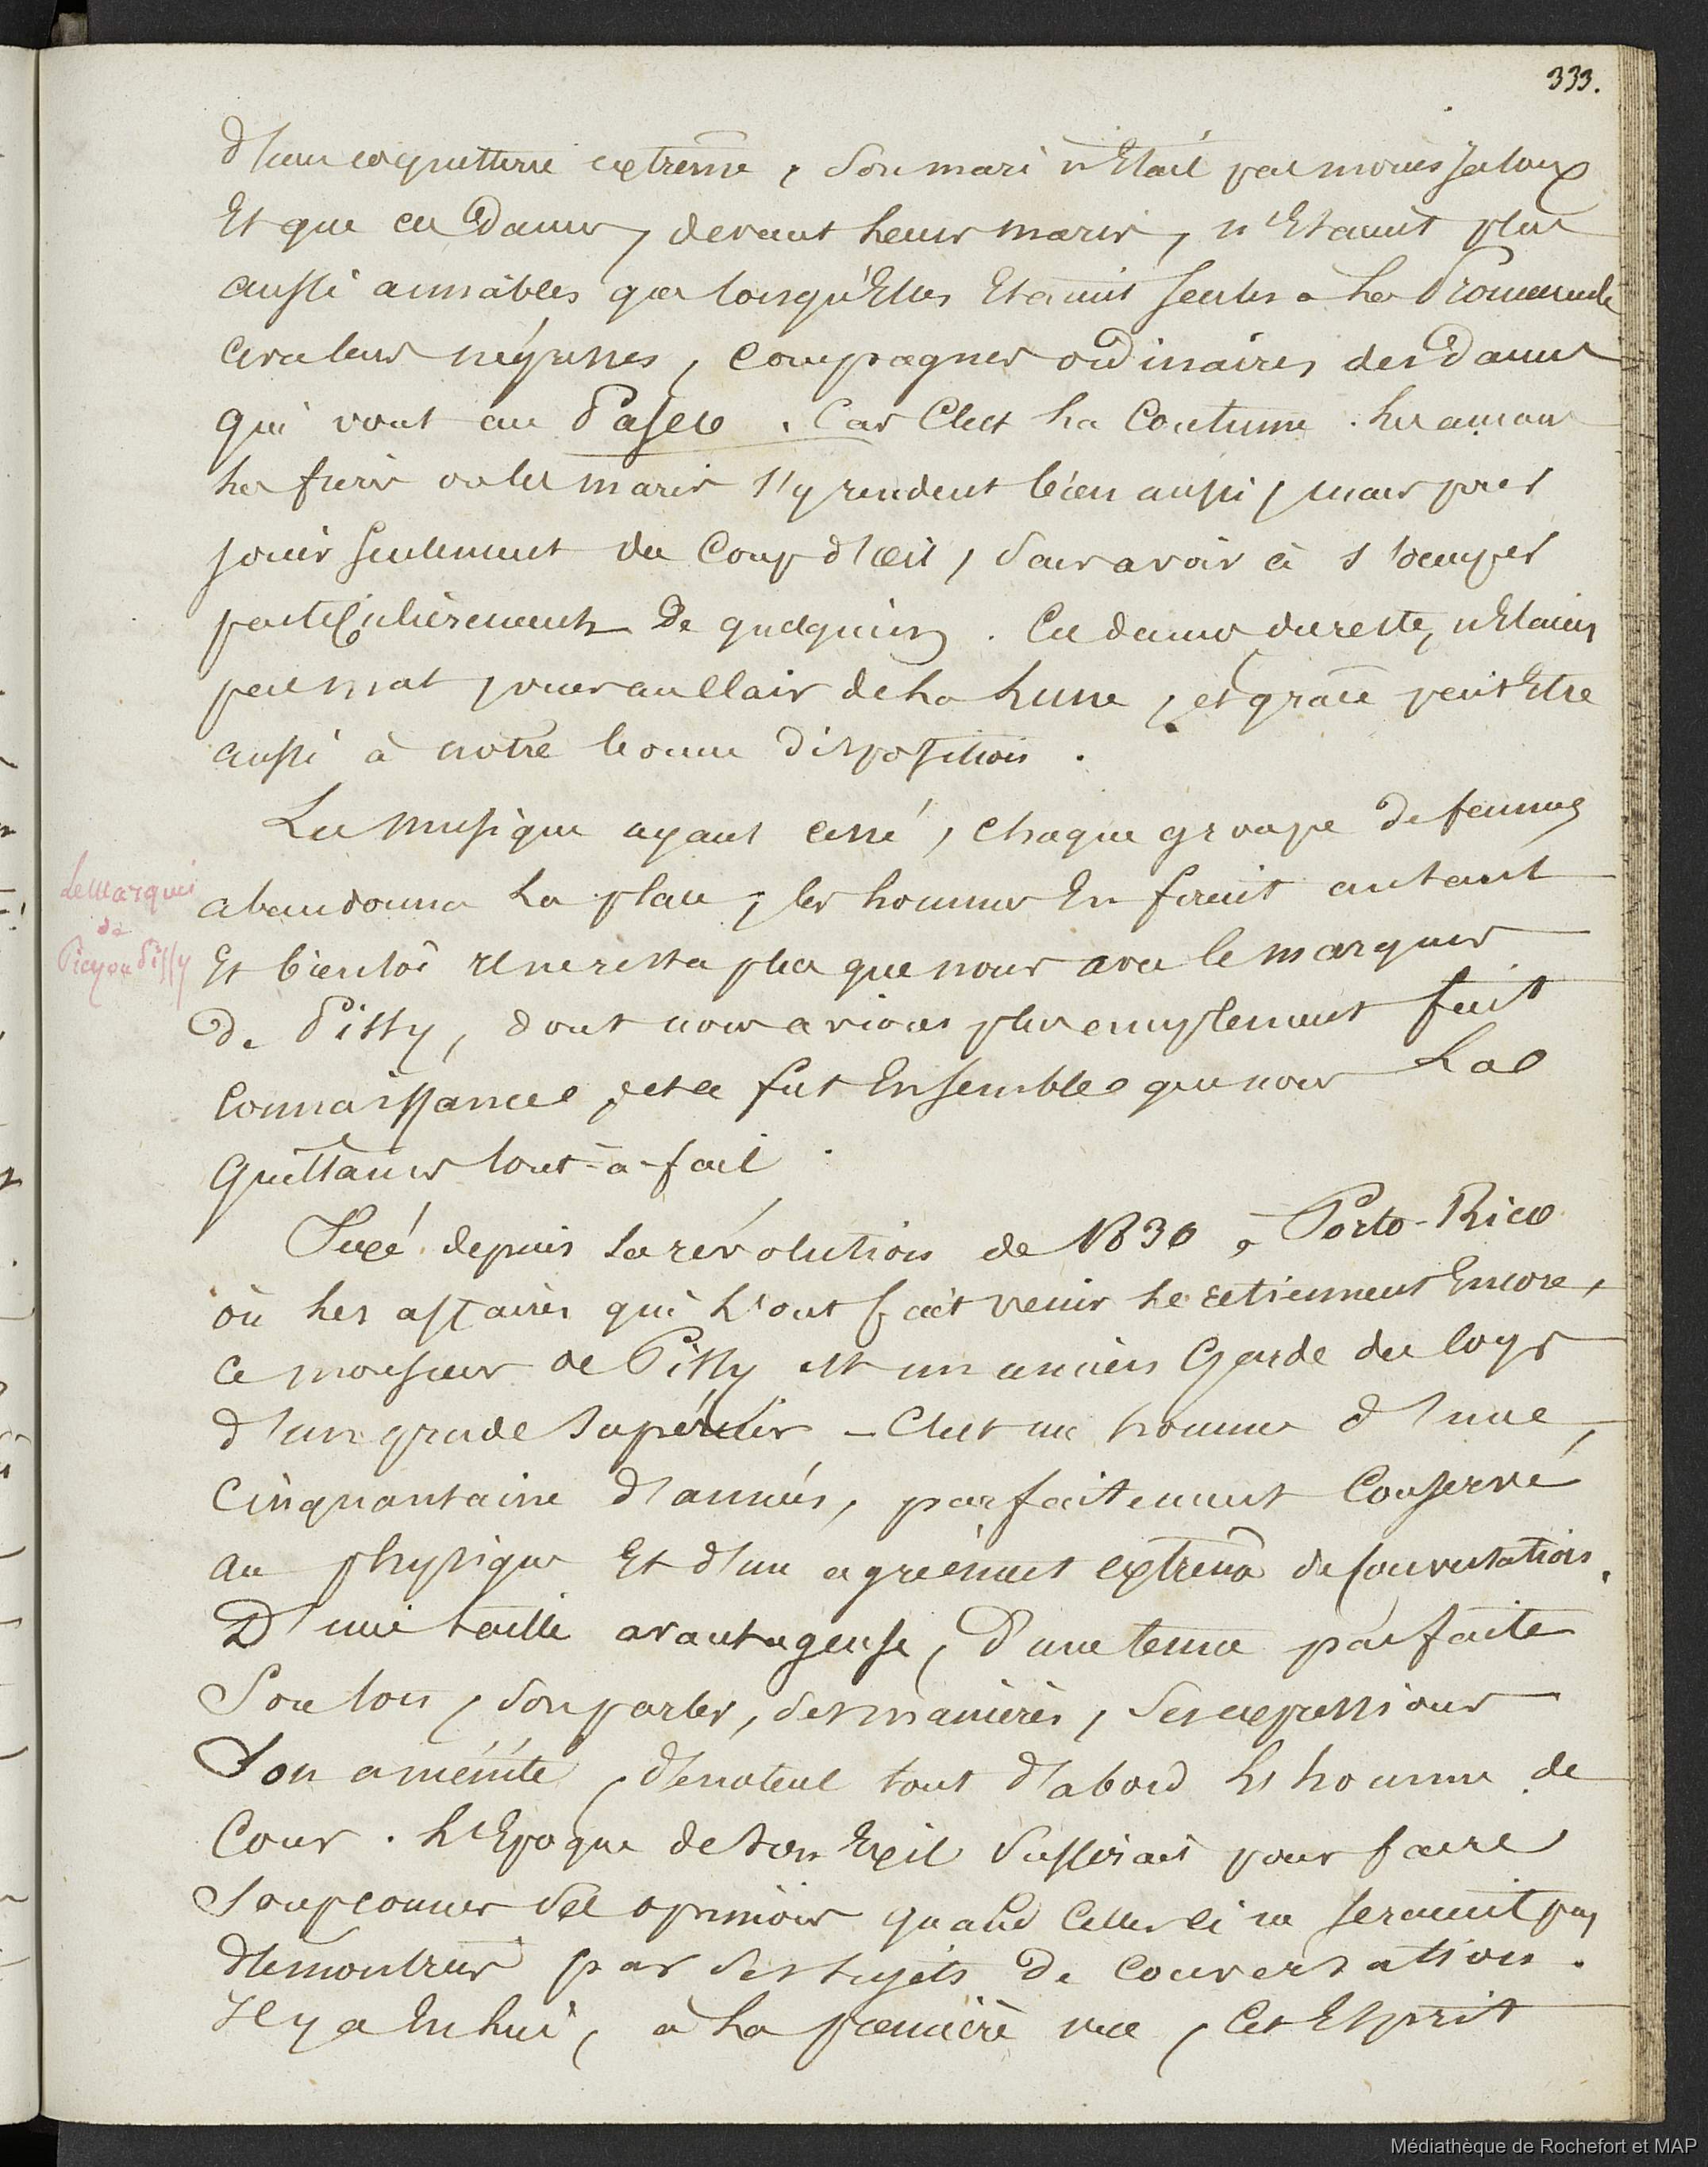 333.
d'une coquetterie extrême, son mari n'était pas moins jaloux
Et que ces Dames, devant leurs maris, n'Etaient plus
aussi aimables que lorsqu'Elles Etaient seules à la Promenade
avec leurs négresses, compagnes ordinaires des Dames
qui vont au Paseo. Car C'est la Coutume. les amans
les frères ou les maris s'y rendent bien aussi, mais pour
jouir seulement du Coup d'œil, sans avoir à s'occuper
particulièrement De quelqu'un. Ces dames du reste, n'Etaient
pas mal, vues au Clair de la lune, et grâce peut Etre
aussi à notre bonne disposition.
La musique ayant cessé, chaque groupe de femmes
abandonna la place, les hommes En firent autant
Et bientôt il ne resta plus que nous avec le marquis
De Pissy, dont nous avions plus amplement fait
Connaissance, et ce fut Ensemble que nous La
Quittâmes tout-à-fait.
Le Marquis
de
Picquon Pissy
Fixé depuis la révolution de 1830, à Porto-Rico
où les affaires qui l'ont fait venir le retiennent Encore,
ce monsieur de Pissy est un ancien Garde du Corps
d'un grade supérieur - C'est un homme d'une
Cinquantaine d'années, parfaitement Conservé
au physique Et d'un agrément extrême de Conversation.
D'une taille avantageuse, D'une tenue parfaite
Son ton, son parler, ses manières, ses expressions
Son aménité, dénotent tout d'abord l'homme de
Cour. L'Epoque de son Exil suffirait pour faire
Soupçonner ses opinions quand Celles ci ne seraient pas
démontrées par ses sujets de Conversation.
Il y a En lui, à la première vue, Cet Esprit
Médiathèque de Rochefort et MAP